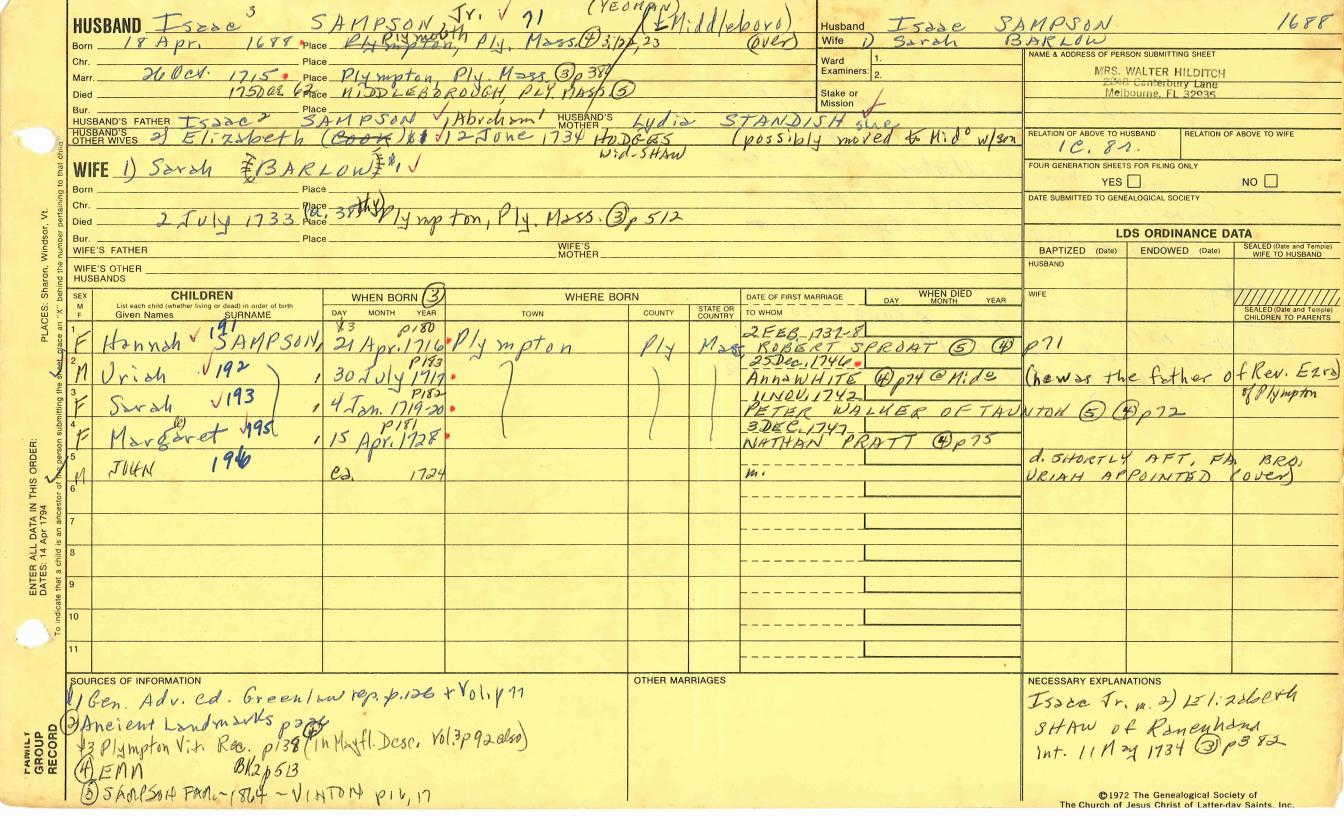 HUSBAND Isaac 3 SAMPSON Jr. 71 (YEOMAN) (Middleboro)
Born 18 Apr. 1688 Place Plympton, Plymouth Ply. Mass. (4) 3/22, 23 (over)
Chr. Place
Marr. 26 Oct. 1715 Place Plympton, Ply. Mass. (3) p 384
Died 1750 Place MIDDLEBOROUGH, PLY. MASS (5)
Bur. Place
HUSBAND'S FATHER Isaac 2 SAMPSON, Abraham 1 HUSBAND'S MOTHER Lydia STANDISH
HUSBAND'S OTHER WIVES 2) Elizabeth (Cook) 12 June 1734 HODGES (possibly moved to Mid° w/son
Wid-SHAW
WIFE 1) Sarah BARLOW
Born Place
Chr. Place
Died 2 July 1733 Place Plympton, Ply. Mass. (3) p 512
Bur. Place
WIFE'S FATHER WIFE'S MOTHER
WIFE'S OTHER HUSBANDS
Husband Isaac SAMPSON 1688
Wife 1) Sarah BARLOW
Ward Examiners: 1.
2.
Stake or Mission
NAME & ADDRESS OF PERSON SUBMITTING SHEET
MRS. WALTER HILDITCH
Canterbury Lane
Melbourne, FL 32935
RELATION OF ABOVE TO HUSBAND RELATION OF ABOVE TO WIFE
1C. 8r.
FOUR GENERATION SHEETS FOR FILING ONLY
YES NO
DATE SUBMITTED TO GENEALOGICAL SOCIETY
LDS ORDINANCE DATA
BAPTIZED (Date) ENDOWED (Date) SEALED (Date and Temple) WIFE TO HUSBAND
HUSBAND
WIFE
SEALED (Date and Temple) CHILDREN TO PARENTS
SEX M F CHILDREN WHEN BORN (3) WHERE BORN DATE OF FIRST MARRIAGE WHEN DIED
List each child (whether living or dead) in order of birth
Given Names SURNAME DAY MONTH YEAR TOWN COUNTY STATE OR COUNTRY TO WHOM DAY MONTH YEAR
1 F Hannah 191 SAMPSON, p180 21 Apr. 1716 Plympton Ply Mass 2 FEB. 1737-8
ROBERT SPROAT (5) (4) p71
2 M Uriah 192 , p183 30 July 1717 25 Dec. 1746
Anna WHITE (4) p74 @ Mid° (he was the father of Rev. Ezra of Plympton
3 F Sarah 193 , p182 4 Jan. 1719-20 11 NOV. 1742
PETER WALKER OF TAUNTON (5) (4) p72
4 F Margaret 195 , p181 15 Apr. 1728 3 DEC. 1747
NATHAN PRATT (4) p75
5 M JOHN 196 ca. 1724 m. d. SHORTLY AFT. FA. BRO. URIAH APPOINTED (over)
6
7
8
9
10
11
SOURCES OF INFORMATION
1) Gen. Adv. ed. Greenlaw rep. p. 126 + Vol. 1 p 77
(2) Ancient Landmarks
#3 Plympton Vit. Rec. p 138 (in Mayfl. Desc. Vol. 3 p 92 also)
(4) EMM BK2 p 513
(5) SAMPSON FAM. ~ 1864 ~ VINTON p 16, 17
OTHER MARRIAGES
NECESSARY EXPLANATIONS
Isaac Jr. m. 2) Elizabeth
SHAW of
Int. 11 May 1734 (3) p 382
©1972 The Genealogical Society of
The Church of Jesus Christ of Latter-day Saints, Inc.
PLACES: Sharon, Windsor, Vt.
ENTER ALL DATA IN THIS ORDER:
DATES: 14 Apr 1794
To indicate that a child is an ancestor of the person submitting the sheet, place an "X" behind the number pertaining to that child
FAMILY GROUP RECORD